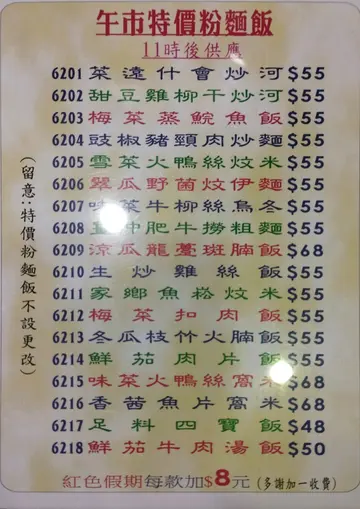 午市特價粉麵飯
11時後供應
6201 菜遠什會炒河 $55
6202 甜豆雞柳干炒河 $55
6203 梅菜蒸鯇魚飯 $55
6204 豉椒豬頸肉炒麵 $55
6205 雪菜火鴨絲炆米 $55
6206 翠瓜野菌炆伊麵 $55
6207 味菜牛柳絲烏冬 $55
6208 沖肥牛撈粗麵 $55
6209 涼瓜龍躉斑腩飯 $68
6210 生炒雞絲飯 $55
6211 家鄉魚崧炆米 $55
6212 梅菜扣肉飯 $55
6213 冬瓜枝竹火腩飯 $55
6214 鮮茄肉片飯 $55
6215 味菜火鴨絲窩米 $68
6216 香茜魚片窩米 $68
6217 足料四寶飯 $48
6218 鮮茄牛肉湯飯 $50
紅色假期每款加$8元 (多謝加一收費)
(留意:特價粉麵飯不設更改)